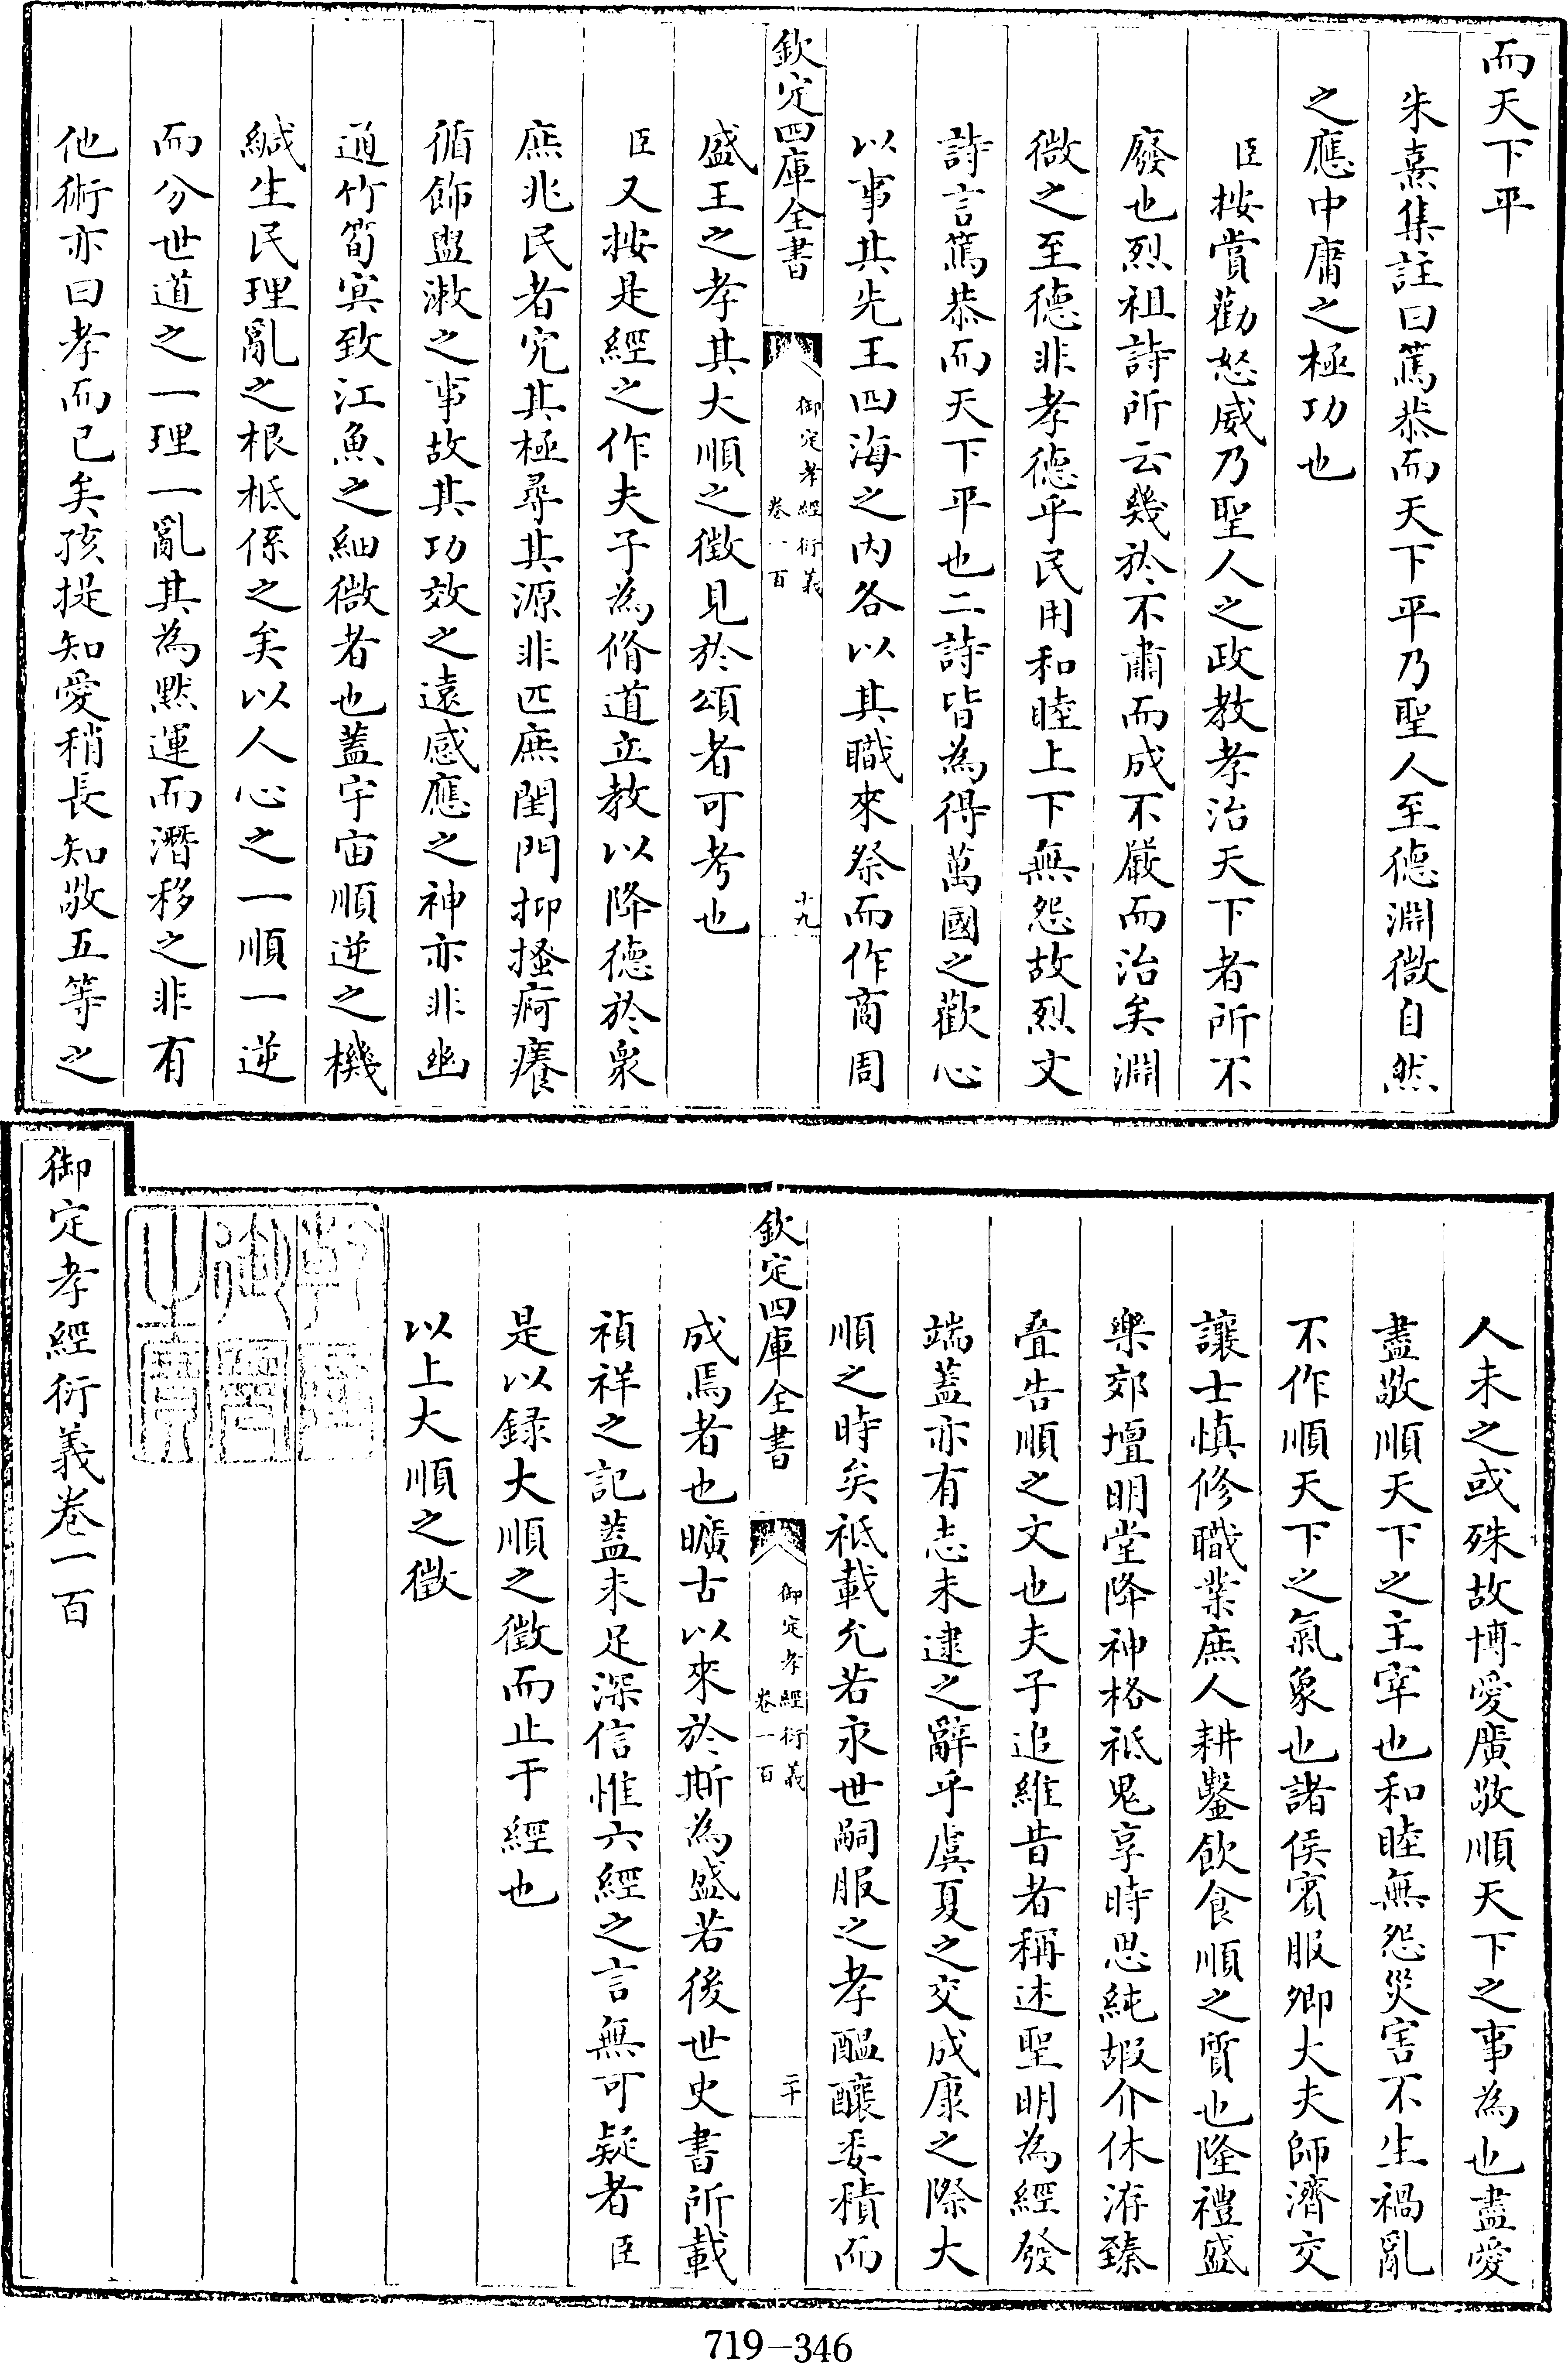 而天下平
朱熹集註曰篤恭而天下平乃聖人至德淵微自然
之應中庸之極功也
臣按賞勸怒威乃聖人之政教孝治天下者所不
廢也烈祖詩所云幾於不肅而成不嚴而治矣淵
微之至德非孝德乎民用和睦上下無怨故烈文
詩言篤恭而天下平也二詩皆為得萬國之歡心
以事其先王四海之內各以其職來祭而作商周
欽定四庫全書
御定孝經衍義
卷一百
十九
盛王之孝其大順之徴見於頌者可考也
臣又按是經之作夫子為脩道立教以降德於衆
庶兆民者究其極尋其源非匹庶閨門抑搔痾癢
循飾盥漱之事故其功效之遠感應之神亦非幽
通竹筍㝠致江魚之細微者也蓋宇宙順逆之機
緘生民理亂之根柢係之矣以人心之一順一逆
而分世道之一理一亂其為黙運而潛移之非有
他術亦曰孝而已矣孩提知愛稍長知敬五等之
人未之或殊故博愛廣敬順天下之事為也盡愛
盡敬順天下之主宰也和睦無怨災害不生禍亂
不作順天下之氣象也諸侯賓服卿大夫師濟交
讓士慎修職業庶人耕鑿飲食順之質也隆禮盛
樂郊壇明堂降神格祗鬼享時思純嘏介休洊臻
叠告順之文也夫子追維昔者稱述聖明為經發
端蓋亦有志未逮之辭乎虞夏之交成康之際大
順之時矣祗載允若永世嗣服之孝醖釀委積而
欽定四庫全書
御定孝經衍義
卷一百
二十
成焉者也曠古以來於斯為盛若後世史書所載
禎祥之記蓋未足深信惟六經之言無可疑者臣
是以録大順之徵而止于經也
以上大順之徵
御定孝經衍義卷一百
719-346